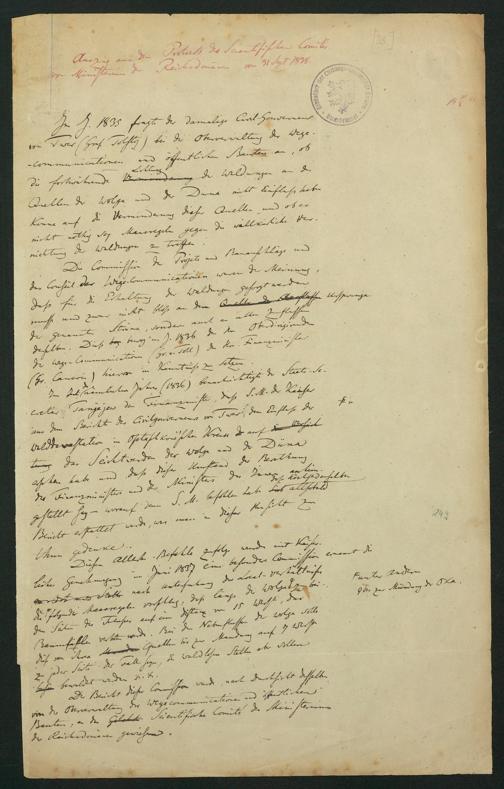 Auszug aus den Protocoll des Scientifischen Comités
vom Ministerium der Reichsdomänen vom 31 Sept 1838.
Im J. 1835 fragte der damalige Civil Gouverneur
von Twer (Graf Tolstoy) bei der Oberverwaltung der Wege-
communicationen und öffentlichen Bauten an, ob
die fortwährende Verminderung der Waldungen an den
Quellen der Wolga und der Düna nicht Einfluss haben
könne auf die Verminderung dieser Quellen und ob es
nicht nöthig sey Massregeln gegen die willkürliche Ver-
nichtung der Waldungen zu treffen.
Die Commission der Projecte und Bauanschläge und
das Conseil der Wegecommunicationen waren der Meinung,
dass für die Erhaltung der Waldungen gesorgt werden
muss und zwar nicht bloss an dem Ursprunge
der genannten Ströme, sondern auch an allen Zuflüssen
derselben. im J. 1836 der Oberdirigirende
der Wegecommunication (Gr. v Toll) den Finanzminister
(Gr. Cancrin) hiervon in Kenntniss zu setzen.
Im Jahre (1836) benachrichtigte der Staats-Se-
cretär Tanejew den Finanzminister, dass S. M. der Kaiser
aus dem Bericht des Civilgouverneurs von Twer, den Einfluss der
Kreise auf
das Seichtwerden der Wolga und der Düna
ersehen habe und dass dieser Umstand der Berathung
des Finanzministers und des Ministers des Innern
gestellt sey – worauf dann S. M. befohlen hat
Bericht erstattet werde, was man in dieser Hinsicht zu
thun gedenke.
Diesem Allerh. Befehle zufolge wurde mit Kaiser-
licher Genehmigung im Juni 1837 eine besondere Commission ernannt die
nach Untersuchung der Local-Verhältnisse
die folgende Massregeln vorschlug, dass längs der Wolga bei-
den Seiten des Flusses auf eine Distanz von 15 Werst das
Baumfällen verboten werde. Bei den Nebenflüssen der Wolga solle
dies von ihren Quellen bis zur Mündung auf 7 Werst
zu jeder Seite der Fall seyn, die waldlosen Stellen aber sollen
bewaldet werden u.s.w.
Der Bericht dieser Commission wurde, nach Durchsicht desselben
von der Oberverwaltung der Wegecommunicationen und öffentlichen
Bauten, an das Scientifische Comité des Ministeriums
der Reichsdomänen gewiesen.
bis zur Mündung der Oka.
243